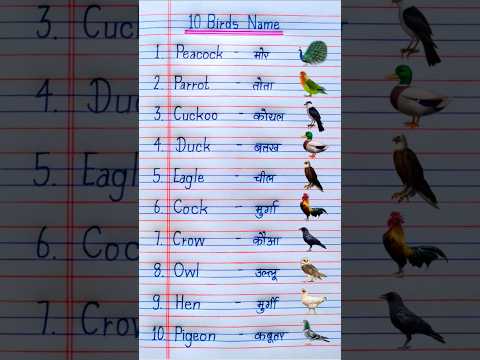 10 Birds Name
1. Peacock - मोर
2. Parrot - तोता
3. Cuckoo - कोयल
4. Duck - बतख
5. Eagle - चील
6. Cock - मुर्गा
7. Crow - कौआ
8. Owl - उल्लू
9. Hen - मुर्गी
10. Pigeon - कबूतर